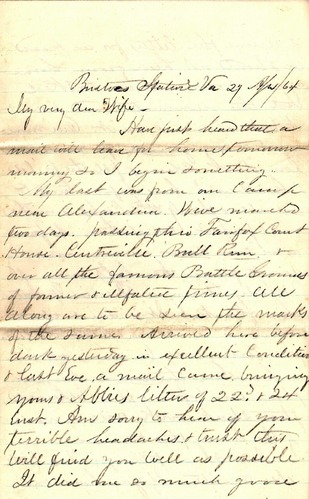 Bristoe Station Va 29 Apl/64
My very dear Wife -
Have just heard that a
mail will leave for home tomorrow
morning so I begin something.
My last was from our Camp
near Alexandria. We've marched
two days. passing thro Fairfax Court
House. Centreville, Bull Run, &
over all the famous Battle Grounds
of former & illfated times All
along are to be seen the marks
of the same Arrived here before
dark yesterday in excellent Condition
& last Eve, a mail Came, bringing
yours & Abbies letter of 22d & 24
inst. Am sorry to hear of your
terrible headaches & trust this
will find you well as possible
It did me so much good